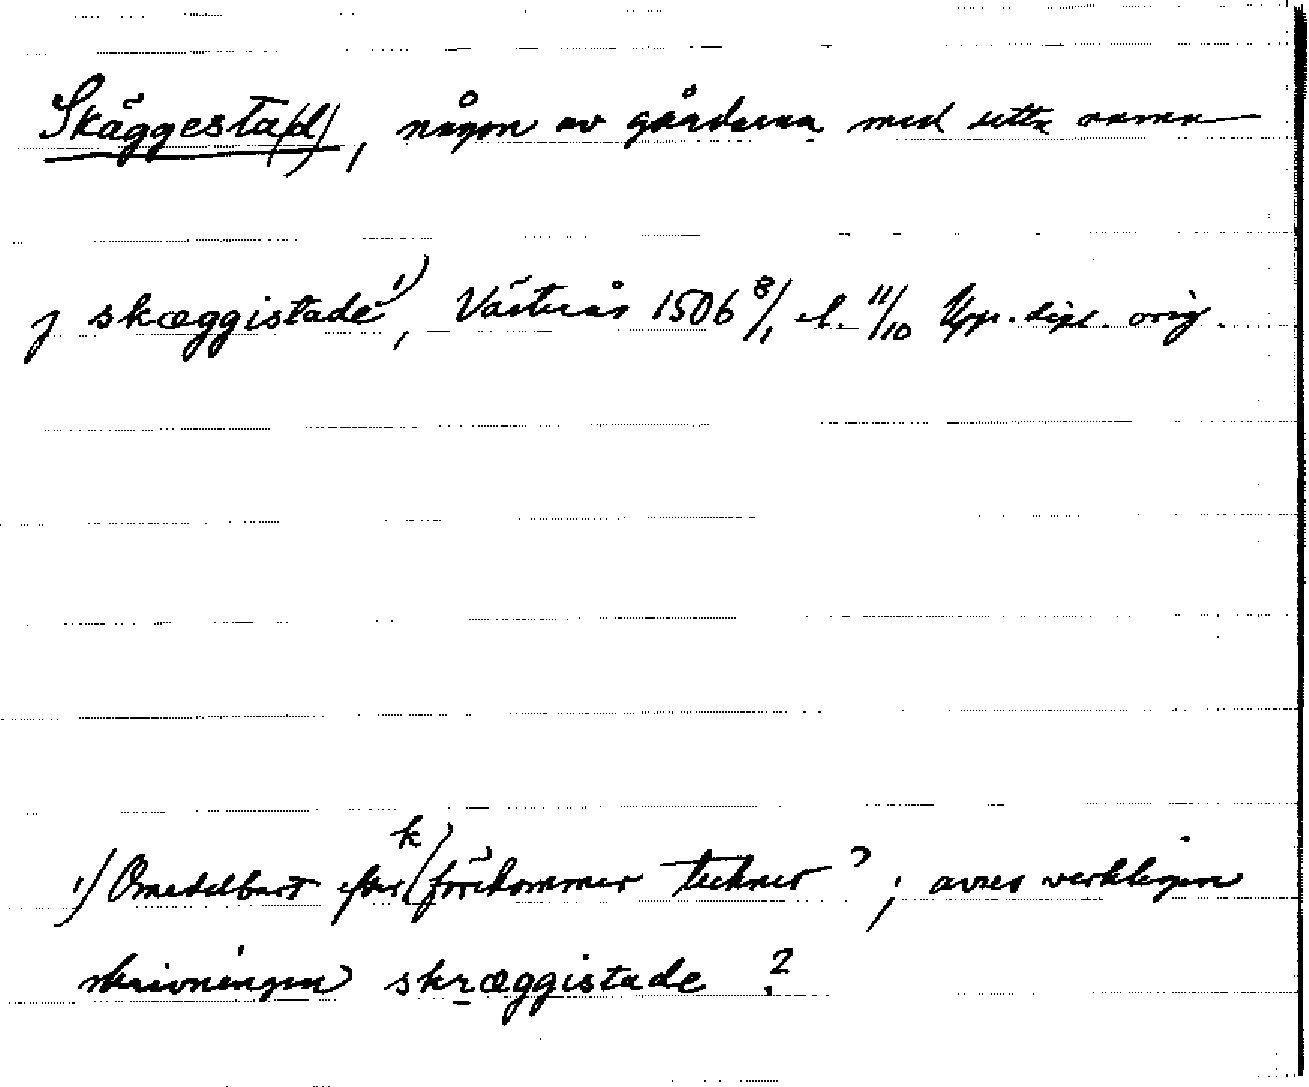 Skäggesta(d), någon av gårdarna med detta namn
j skæggistade¹⁾, Västerås 1506 8/1 el. 11/10 Upps. dipl. orig.
1) Omedelbart efter k förekommer tecknet ʾ; avses verkligen
skrivningen skræggistade ?